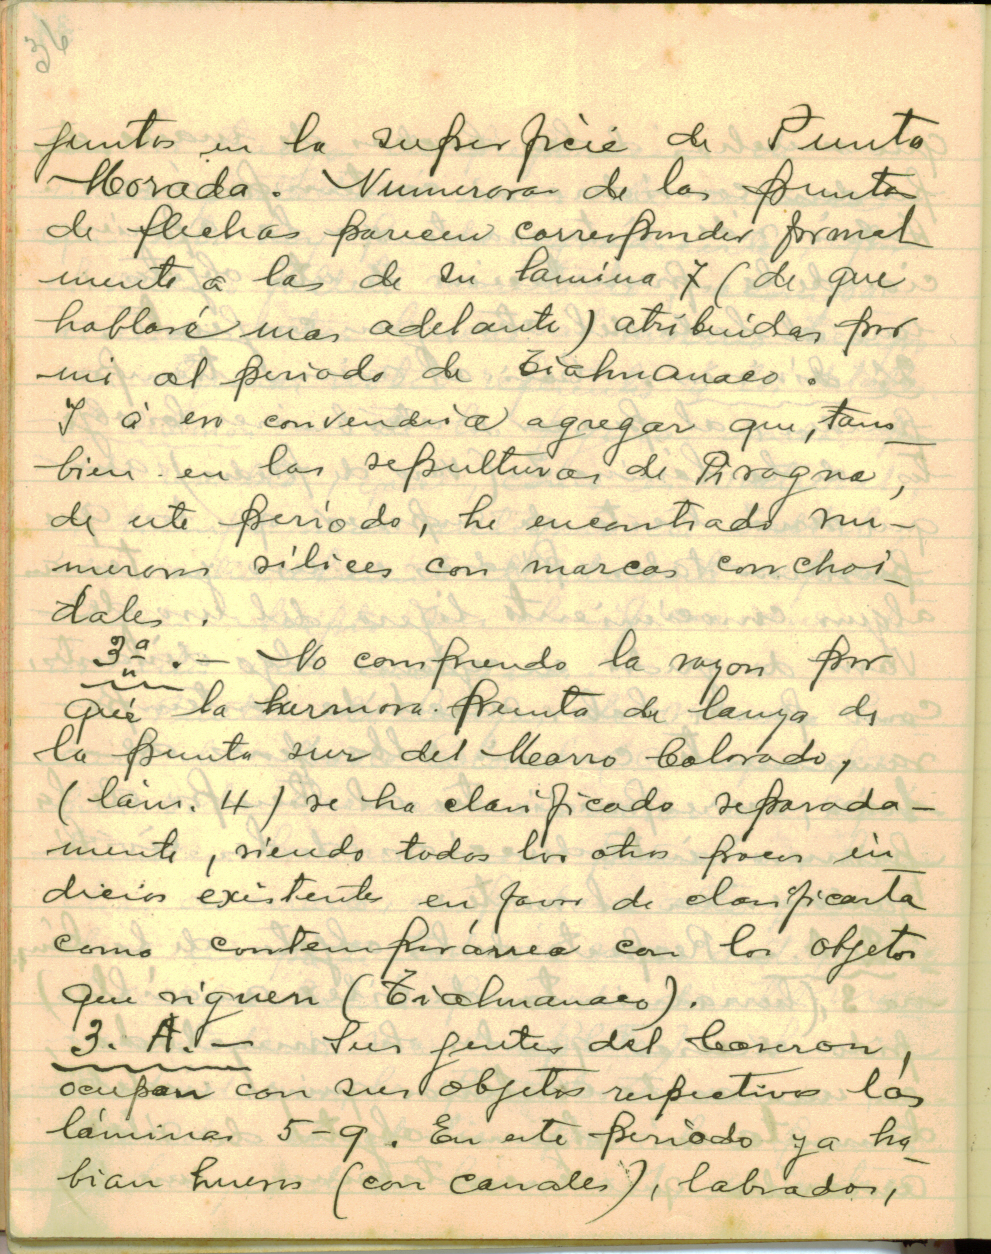 36
juntos en la superficie de Punta
Morada. Numerosas de las puntas
de flechas parecen corresponder formal
mente a las de su lamina 7 (de que
hablaré mas adelante) atribuidas por
mi al periodo de Tiahuanaco.
I á eso convendria agregar que, tam_
bien en las sepulturas de Pisagua,
de este período, he encontrado nu-
merosos sílices con marcas conchoi_
dales.
3ª.- No comprendo la razon por
qué la hermosa punta de lanza de
la punta sur del Morro Colorado,
(lám. 4) se ha clasificado separada-
mente, siendo todos los otros pocos in
dicios existentes en favor de clasificarla
como contemporánea con los objetos
que siguen (Tiahuanaco).
3. A.- Sus gentes del Caseron,
ocupan con sus objetos respectivos las
láminas 5-9. En este período ya ha_
bian huesos (con canales), labrados,